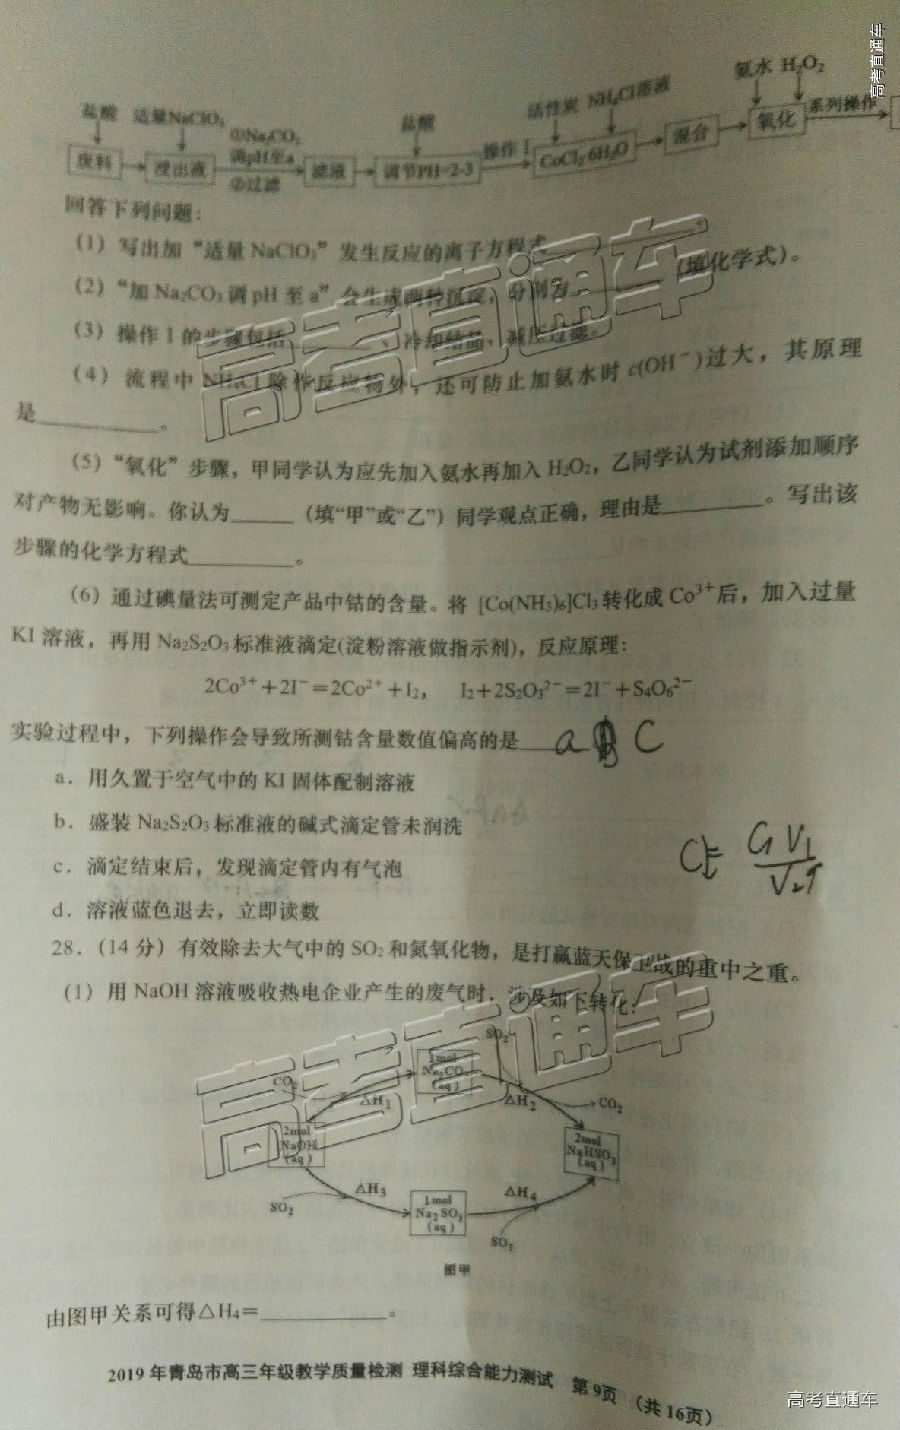 高考直通车
氨水 H₂O₂
盐酸 适量NaClO₃ ①Na₂CO₃ 盐酸 活性炭 NH₄Cl溶液 系列操作
废料 浸出液 调pH至a 滤液 调节PH=2-3 操作Ⅰ CoCl₂·6H₂O 混合 氧化
②过滤
回答下列问题：
(1) 写出加“适量 NaClO₃”发生反应的离子方程式
(2) “加 Na₂CO₃ 调 pH 至 a”会生成两种沉淀，分别为______（填化学式）。
(3) 操作Ⅰ的步骤包括、冷却结晶、减压过滤。
(4) 流程中 NH₄Cl 除作反应物外，还可防止加氨水时 c(OH⁻)过大，其原理
是______。
(5) “氧化”步骤，甲同学认为应先加入氨水再加入 H₂O₂，乙同学认为试剂添加顺序
对产物无影响。你认为______（填“甲”或“乙”）同学观点正确，理由是______。写出该
步骤的化学方程式______。
(6) 通过碘量法可测定产品中钴的含量。将 [Co(NH₃)₆]Cl₃ 转化成 Co³⁺后，加入过量
KI 溶液，再用 Na₂S₂O₃ 标准液滴定(淀粉溶液做指示剂)，反应原理：
2Co³⁺+2I⁻=2Co²⁺+I₂， I₂+2S₂O₃²⁻=2I⁻+S₄O₆²⁻
实验过程中，下列操作会导致所测钴含量数值偏高的是 a C
a．用久置于空气中的 KI 固体配制溶液
b．盛装 Na₂S₂O₃ 标准液的碱式滴定管未润洗
c．滴定结束后，发现滴定管内有气泡
d．溶液蓝色退去，立即读数
28．(14 分) 有效除去大气中的 SO₂ 和氮氧化物，是打赢蓝天保卫战的重中之重。
(1) 用 NaOH 溶液吸收热电企业产生的废气时，涉及如下转化：
SO₂
1mol
Na₂CO₃
(aq)
CO₂ △H₁ △H₂ CO₂
2mol
NaOH
(aq)
2mol
NaHSO₃
(aq)
SO₂ △H₃ △H₄
1mol
Na₂SO₃
(aq)
SO₂
图甲
由图甲关系可得△H₄=______。
2019 年青岛市高三年级教学质量检测 理科综合能力测试 第 9页 （共 16页）
高考直通车
高考直通车
高考直通车